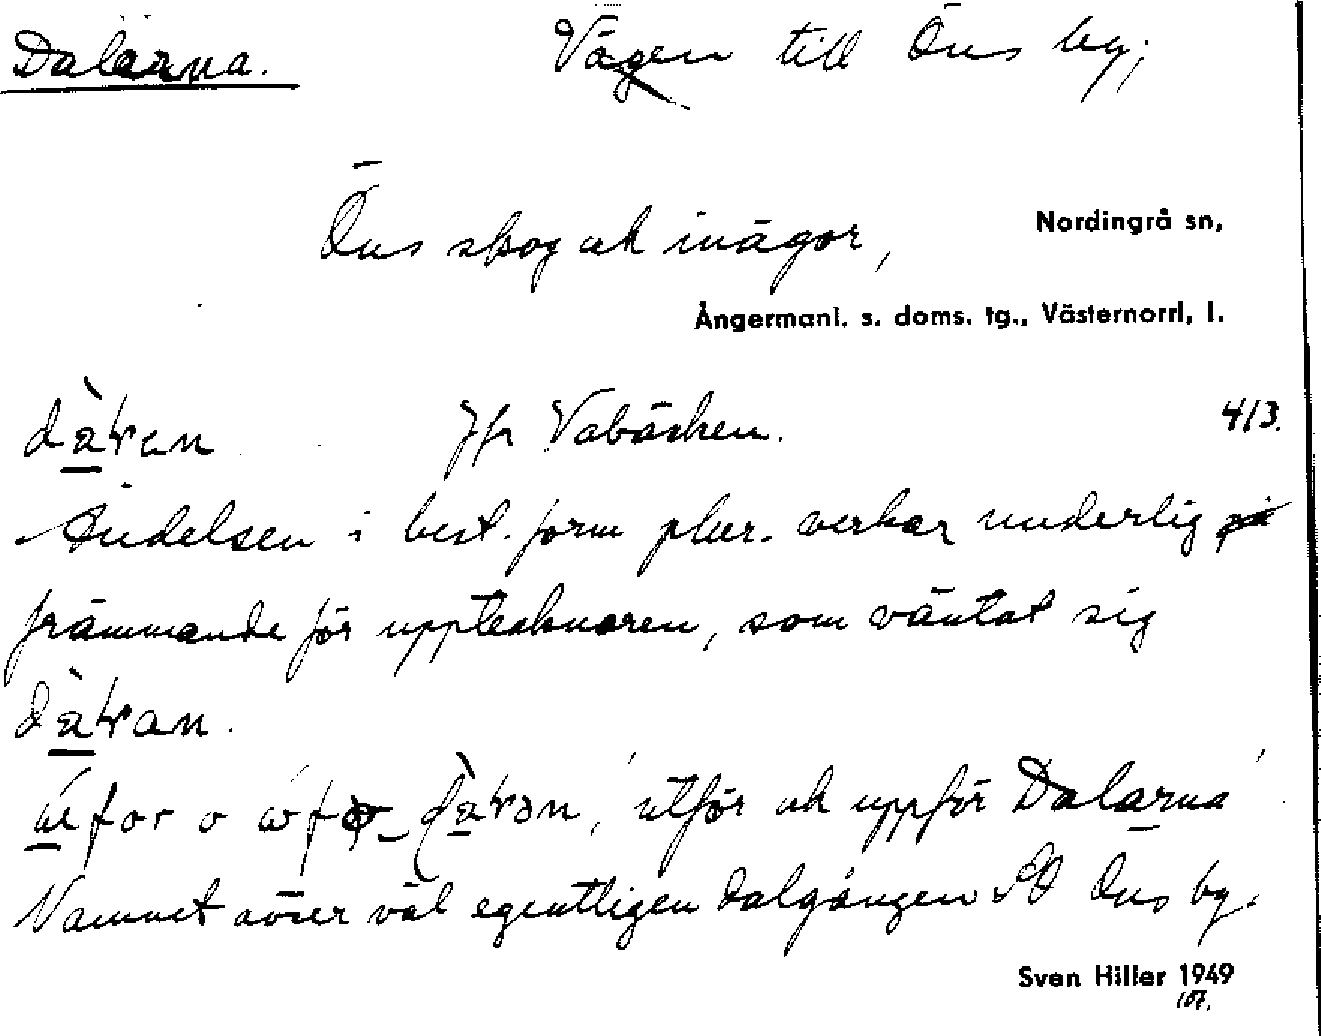 Dalarna. Vägen till Öns by;
Öns skog och inägor, Nordingrå sn,
Ångermanl. s. doms. tg., Västernorrl. l.
dàɽan Jfr Vabäcken. 4/3.
Ändelsen i best. form plur. verkar underlig på
främmande för upptecknaren, som väntat sig
dàɽan.
utför och uppför Dalarna'
Namnet avser väl egentligen dalgången SO Öns by.
Sven Hiller 1949
107.